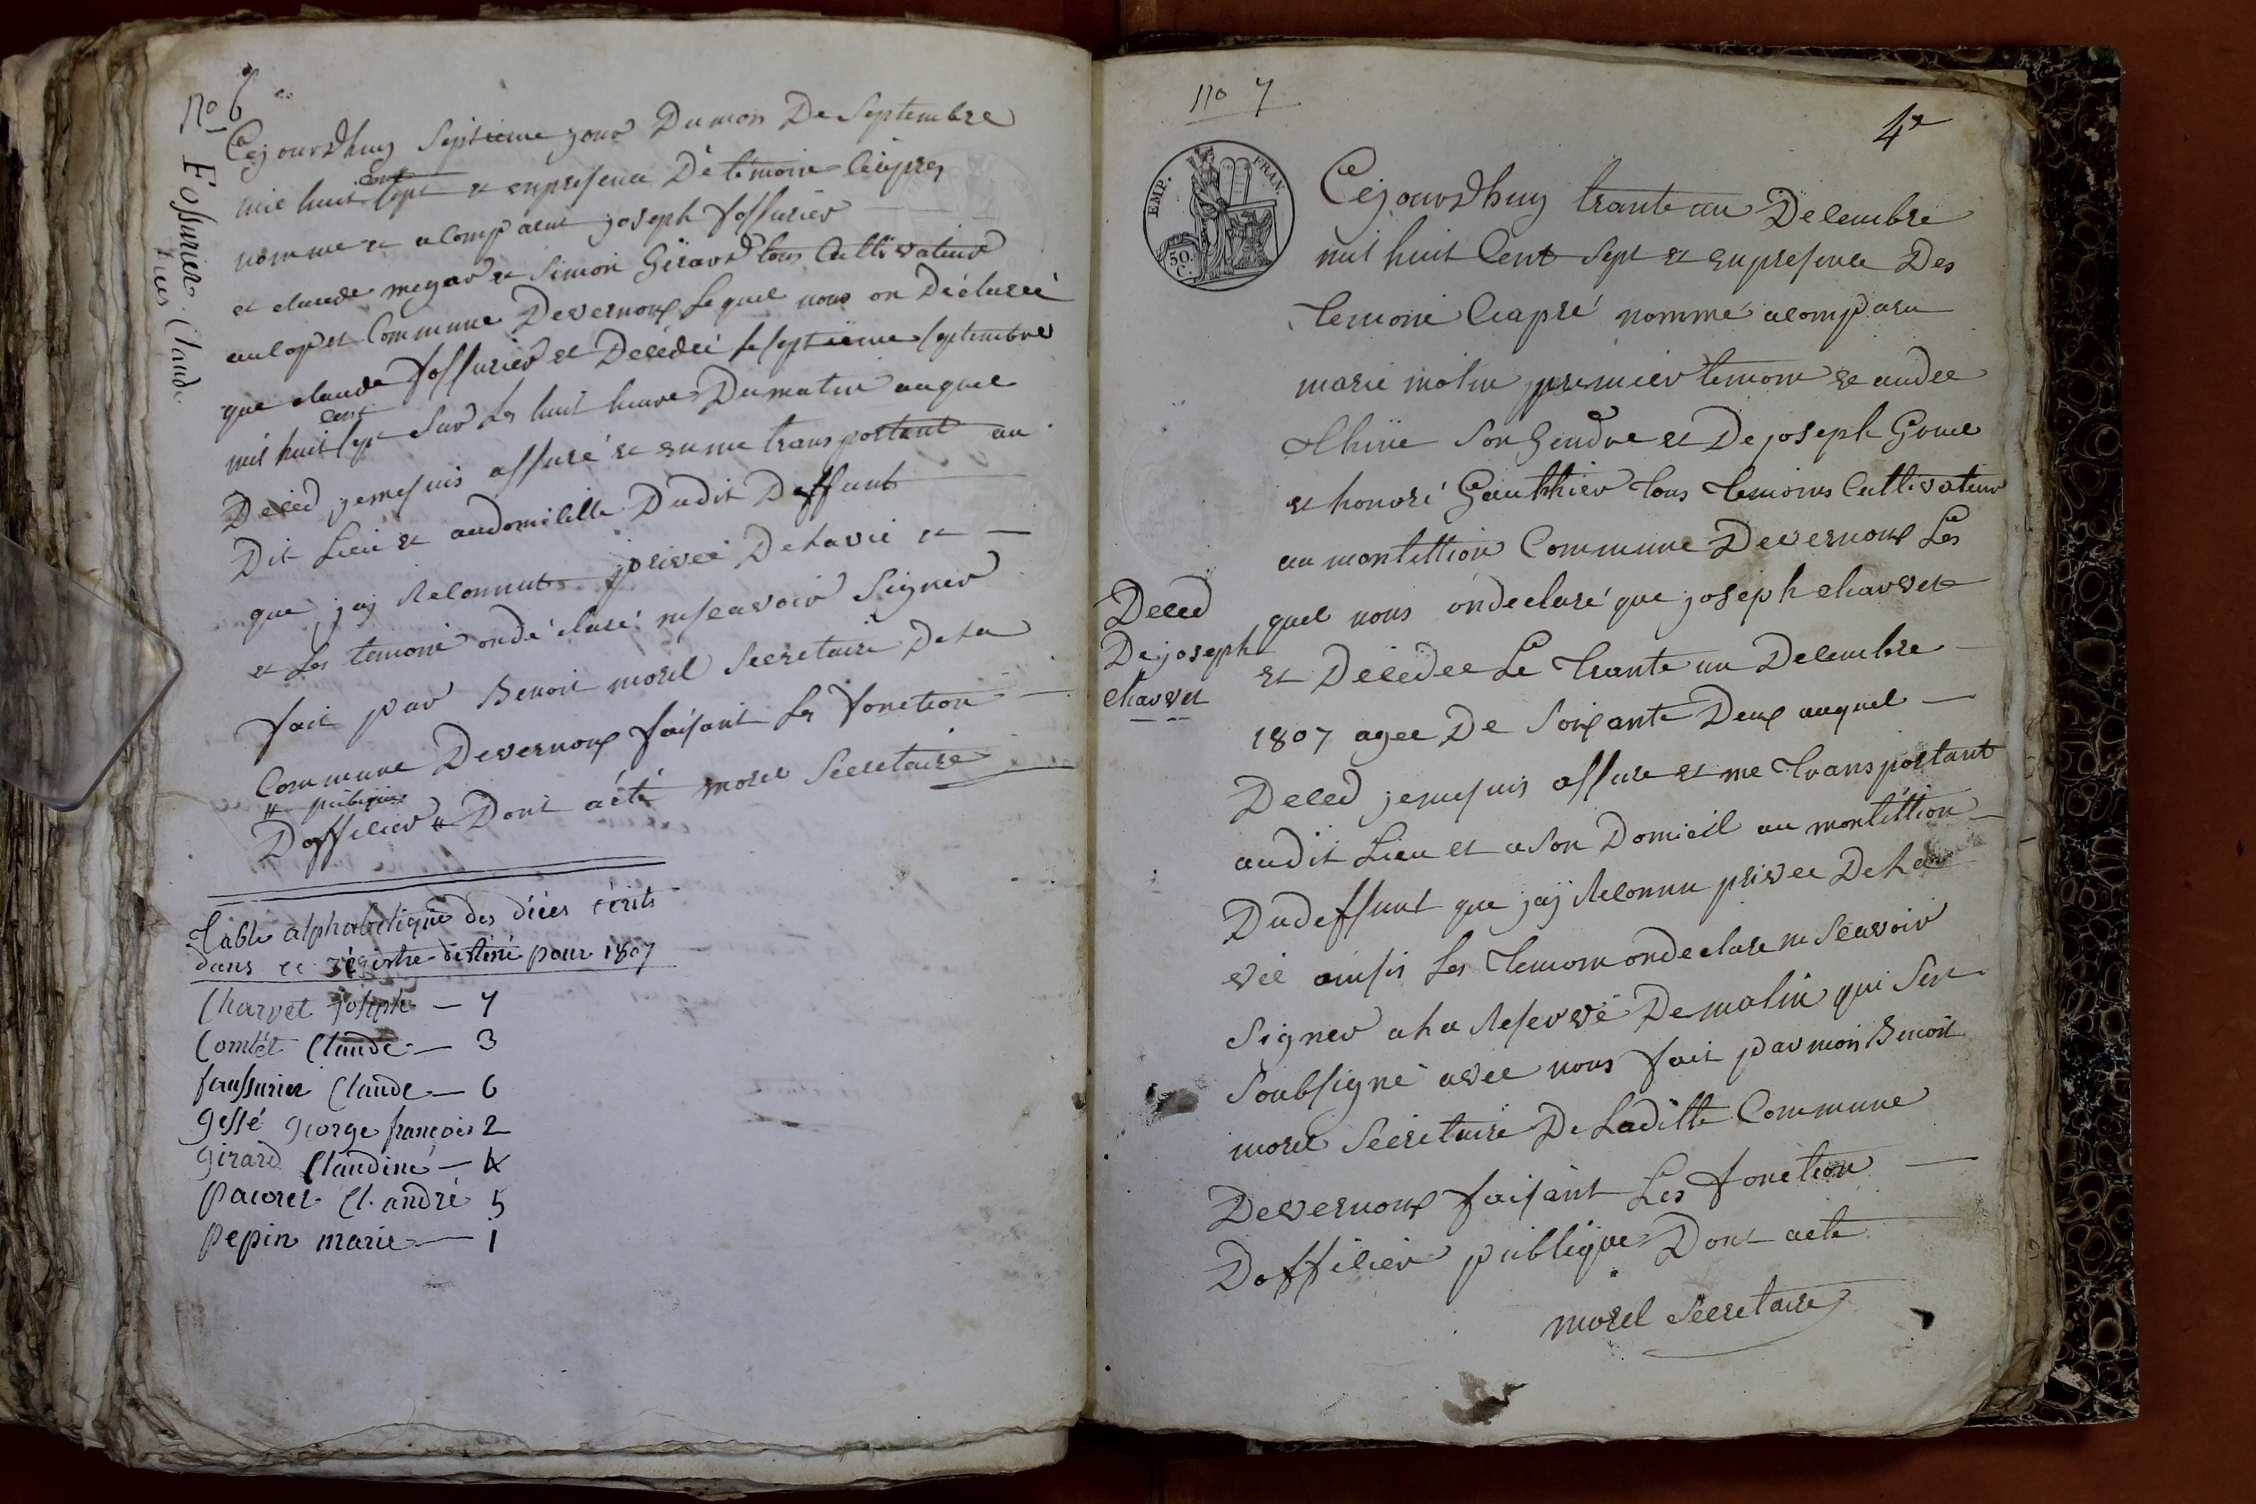 No 6
Fossurier Claude
Cejourdhuy Septieme jour Dumois De Septembre
mil huit cent Sept et enpresence De temoin Ciapres
nommé et a Comparut joseph fossurier
et claude meyar et Simon Girard tous Cultivateur
au et Commune Devernoux Lequel nous on Déclaréé
que claude fossurier et Décédéé le Septieme Septembre
mil huit cent Sept Sur les huit heures Dumatin auquel
Déced jemesuis assuré et enme transportant au
Dit Lieu et audomicille Dudit Deffunt
que jaj Reconnut privéé Delavie et
et Les temoin ondéclaré neseavoir Signer
fait par Benoit morel Secretaire Dela
Commune Devernoux faisant les fonction
" publique
Dofficier " Dont acté morel Secretaire
Table alphabetique des décés écrits
dans ce régistre destiné pour 1807
Charvet joseph — 7
Comtet Claude — 3
faussurier Claude — 6
gessé george françois 2
girard Claudine — 4
pacoret Cl. andré 5
pepin marie — 1
no 7
4e
EMP. FRAN.
50 C.
Cejourdhuy trante un Decembre
mil huit Cent Sept et enpresence Des
temoin Ciapré nommé acomparu
marie molin premier temoin et andre
Son Gendre et De joseph
et honoré Gauthier tous temoins Cultivateur
au montettion Commune Devernoux Les
quel nous ondeclaré que joseph charvet
et Décédee Le trante un Decembre
1807 agee De Soixante Deux auquel
Déced jemesuis assure et me transportant
audit Lieu et a Son Domicil au montettion
Dudeffunt que jaj Reconnu privee Dela
vie ainsin Les temoin ondeclare ne Seavoir
Signer a la Reservé Demolin qui Set
Soubsigné avec nous fait parmoi Benoit
morel Secretaire De Laditte Commune
Devernoux faisant Les fonction
Dofficier publique Dont acte
morel Secretaire
Deced
De joseph
charvet